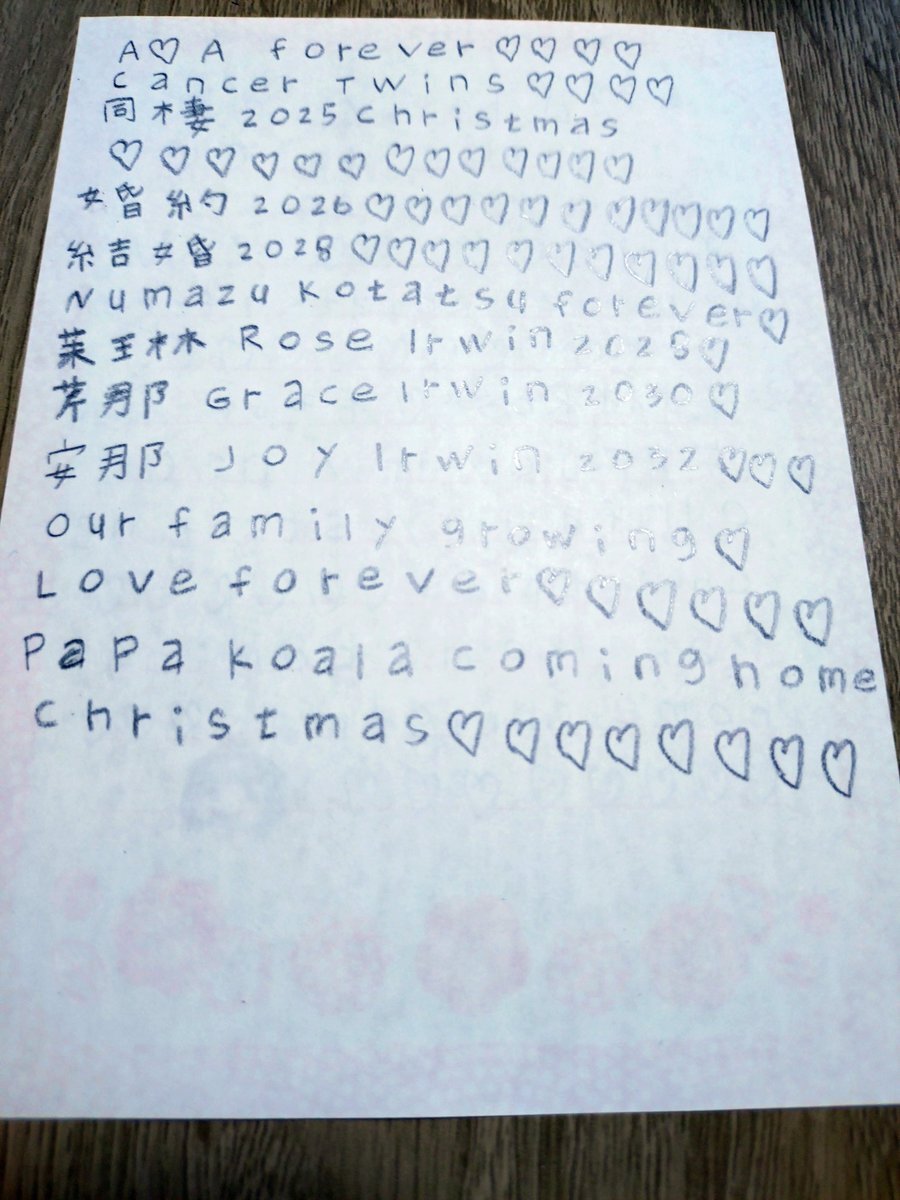 A♡A forever ♡♡♡♡
cancer Twins♡♡♡♡
同棲 2025 christmas
♡♡♡♡♡♡♡♡♡♡♡♡♡
婚約 2026♡♡♡♡♡♡♡♡♡♡♡
結婚 2028♡♡♡♡♡♡♡♡♡♡♡
Numazu Kotatsu forever♡
茉琳 Rose Irwin 2028♡
芹那 Grace Irwin 2030♡
安那 Joy Irwin 2032♡♡♡
our family growing♡
Love forever♡♡♡♡♡♡
PaPa koala coming home
christmas♡♡♡♡♡♡♡♡